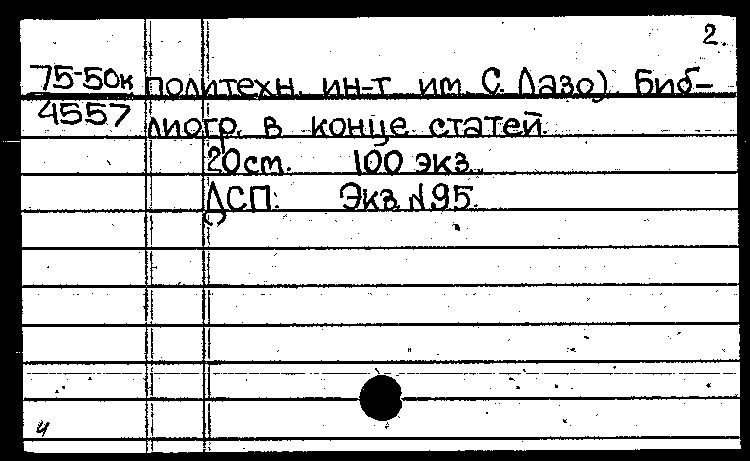 2.
75-50к политехн. ин-т им. С. Лазо). Биб-
4557 лиогр. в конце статей.
20 см. 100 экз.
ДСП: Экз. № 95.
ч